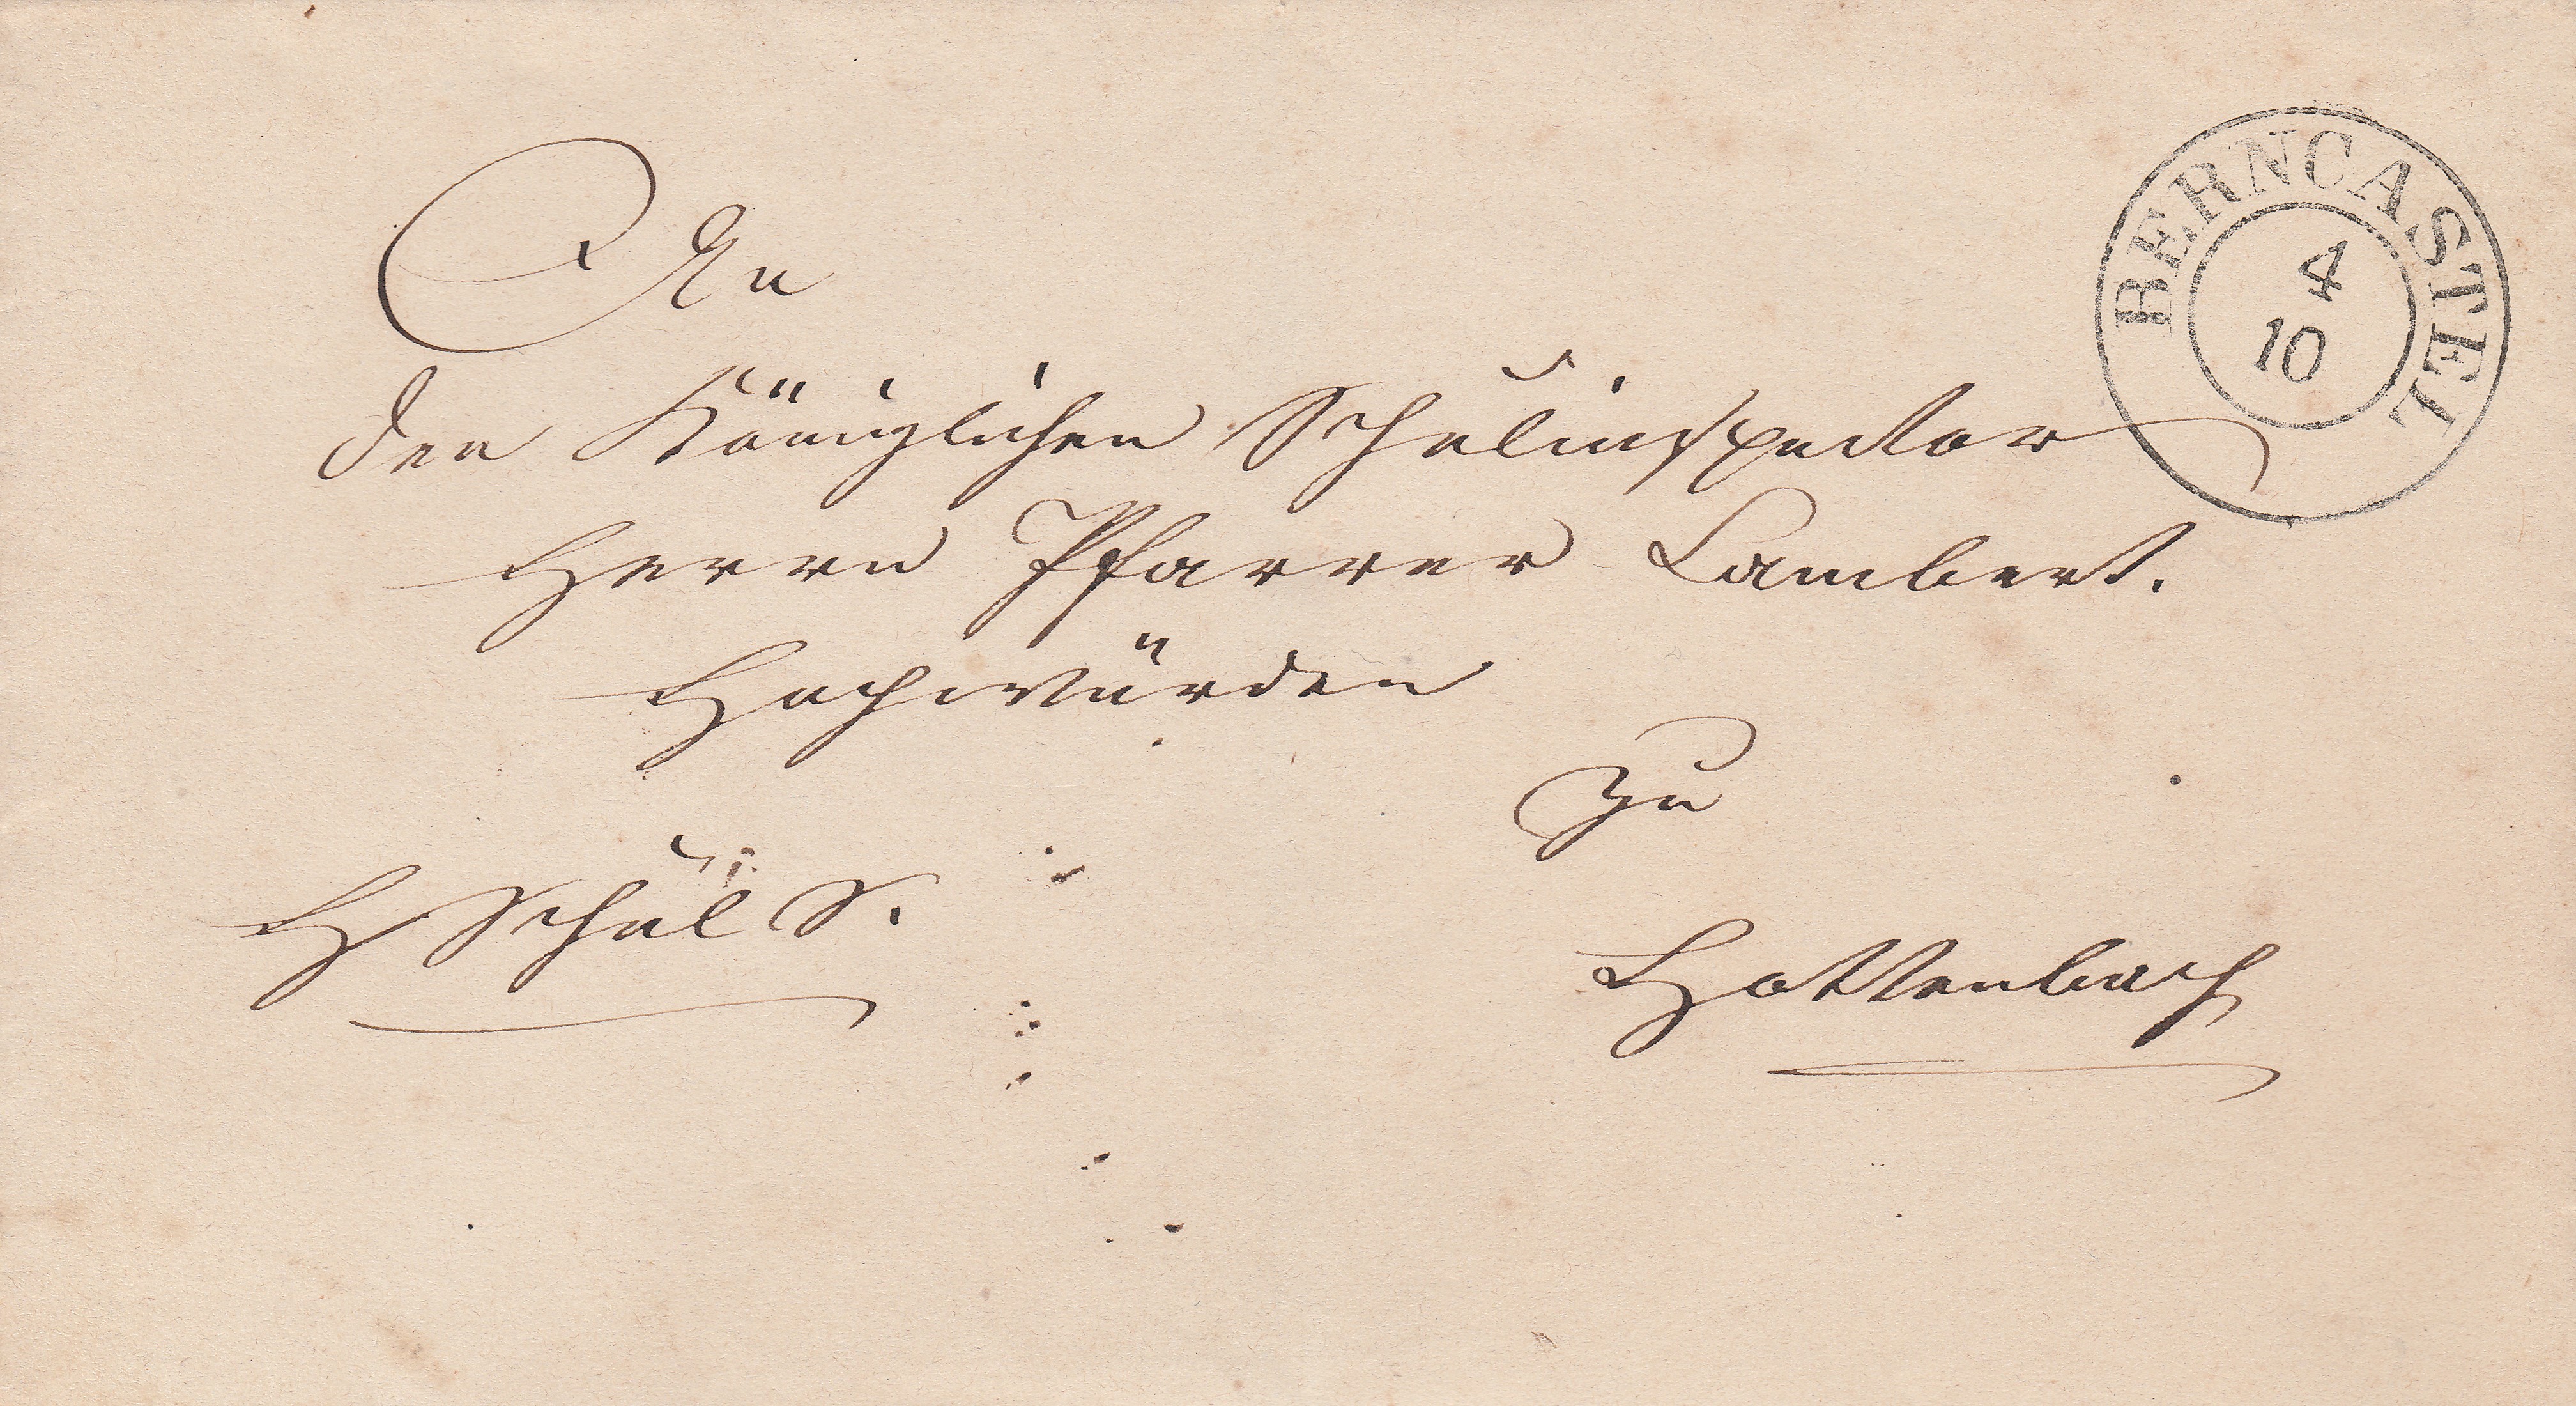 BERNCASTEL
4
10
An
den Königlichen Schulinspector
Herrn Pfarrer Lambert.
Hochwürden
zu
H Schul S.
Hottenbach